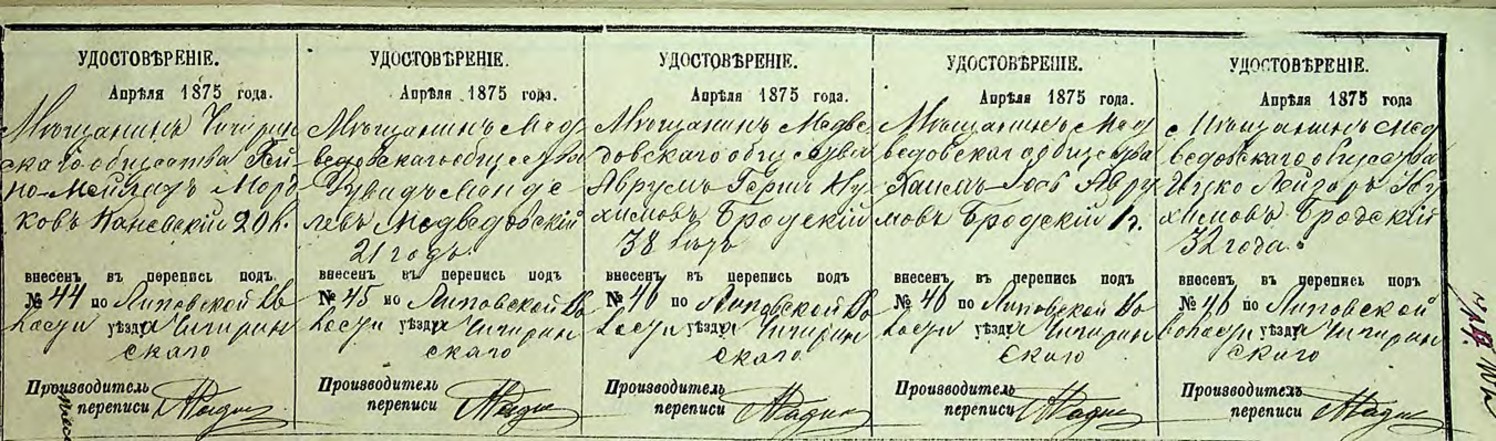 УДОСТОВѢРЕНІЕ.
Апрѣля 1875 года.
Мѣщанинъ Чигирин
скаго общества
Мор
ковъ 20 л.
внесенъ въ перепись подъ
№ 44 по Липовской Во
лости уѣзда Чигирин
скаго
Производитель
переписи
УДОСТОВѢРЕНІЕ.
Апрѣля 1875 года.
Мѣщанинъ Мед
ведовскаго общества
Дувидъ Манде
левъ Медведовскій
21 годъ
внесенъ въ перепись подъ
№ 45 по Липовской Во
лости уѣзда Чигирин
скаго
Производитель
переписи
УДОСТОВѢРЕНІЕ.
Апрѣля 1875 года.
Мѣщанинъ Медве
довскаго общества
Аврумъ Герш Ну
химовъ Бродскій
38 лѣтъ
внесенъ въ перепись подъ
№ 46 по Липовской Во
лости уѣзда Чигирин
скаго
Производитель
переписи
УДОСТОВѢРЕНІЕ.
Апрѣля 1875 года.
Мѣщанинъ Мед
ведовскаго общества
Хаимъ Іось Авру
мовъ Бродскій
внесенъ въ перепись подъ
№ 46 по Липовской Во
лости уѣзда Чигирин
скаго
Производитель
переписи
УДОСТОВѢРЕНІЕ.
Апрѣля 1875 года
Мѣщанинъ Мед
ведовскаго общества
Ицко Лейзоръ Ну
химовъ Бродскій
32 года.
внесенъ въ перепись подъ
№ 46 по Липовской
волости уѣзда Чигирин
скаго
Производитель
переписи